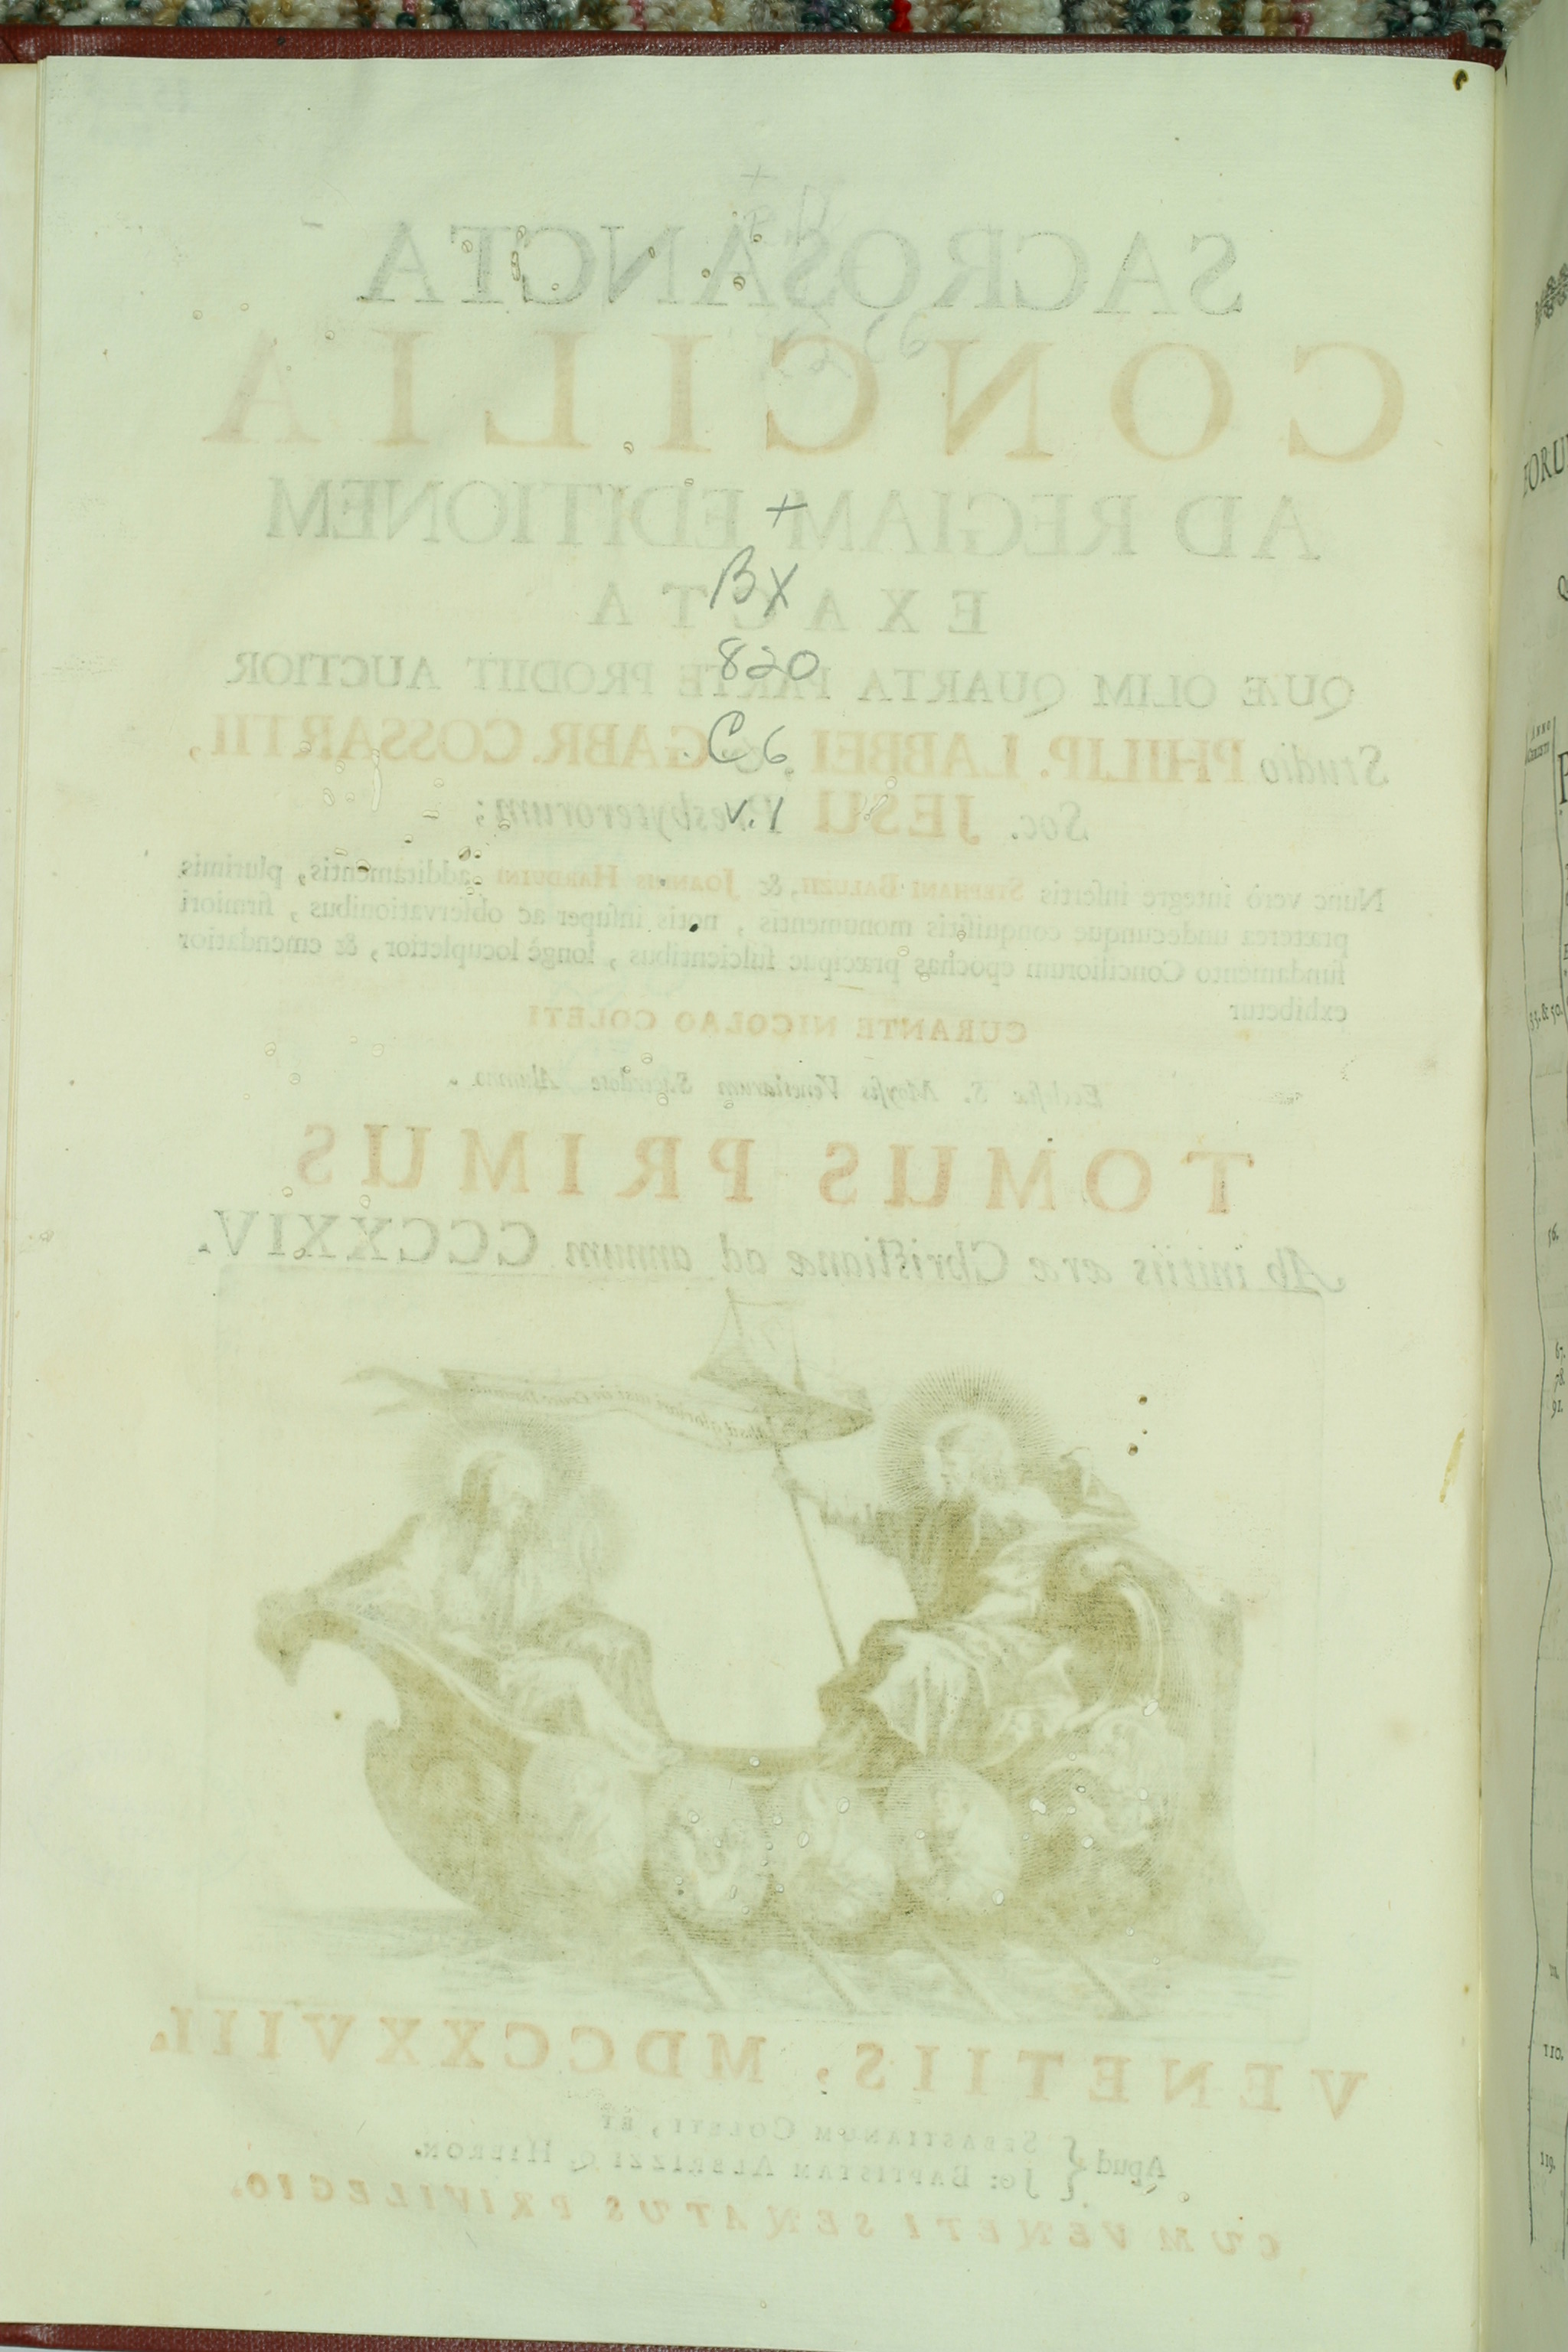 +
BX
820
C6
v.1
SACROSANCTA
CONCILIA
AD REGIAM EDITIONEM
EXACTA
QUÆ OLIM QUARTA PARTE PRODIIT AUCTIOR
Studio PHILIP. LABBEI & GABR. COSSARTII,
Soc. JESU Presbyterorum;
Nunc verò integre insertis STEPHANI BALUZII, & JOANNIS HARDUINI additamentis, plurimis
præterea undecunque conquisitis monumentis, notis insuper ac observationibus, firmiori
fundamento Conciliorum epochas præcipue fulcientibus, longè locupletior, & emendatior
exhibetur
CURANTE NICOLAO COLETI
Ecclesiæ S. Moysis Venetiarum Sacerdote Alumno.
TOMUS PRIMUS
Ab initiis æræ Christianæ ad annum CCCXXIV.
VENETIIS, MDCCXXVIII.
Apud { SEBASTIANUM COLETI, ET
JO: BAPTISTAM ALBRIZZI Q. HIERON.
CUM VENETI SENATUS PRIVILEGIO.
ANNO
CHRISTI
33. & 50.
56.
67.
78.
91.
110.
119.